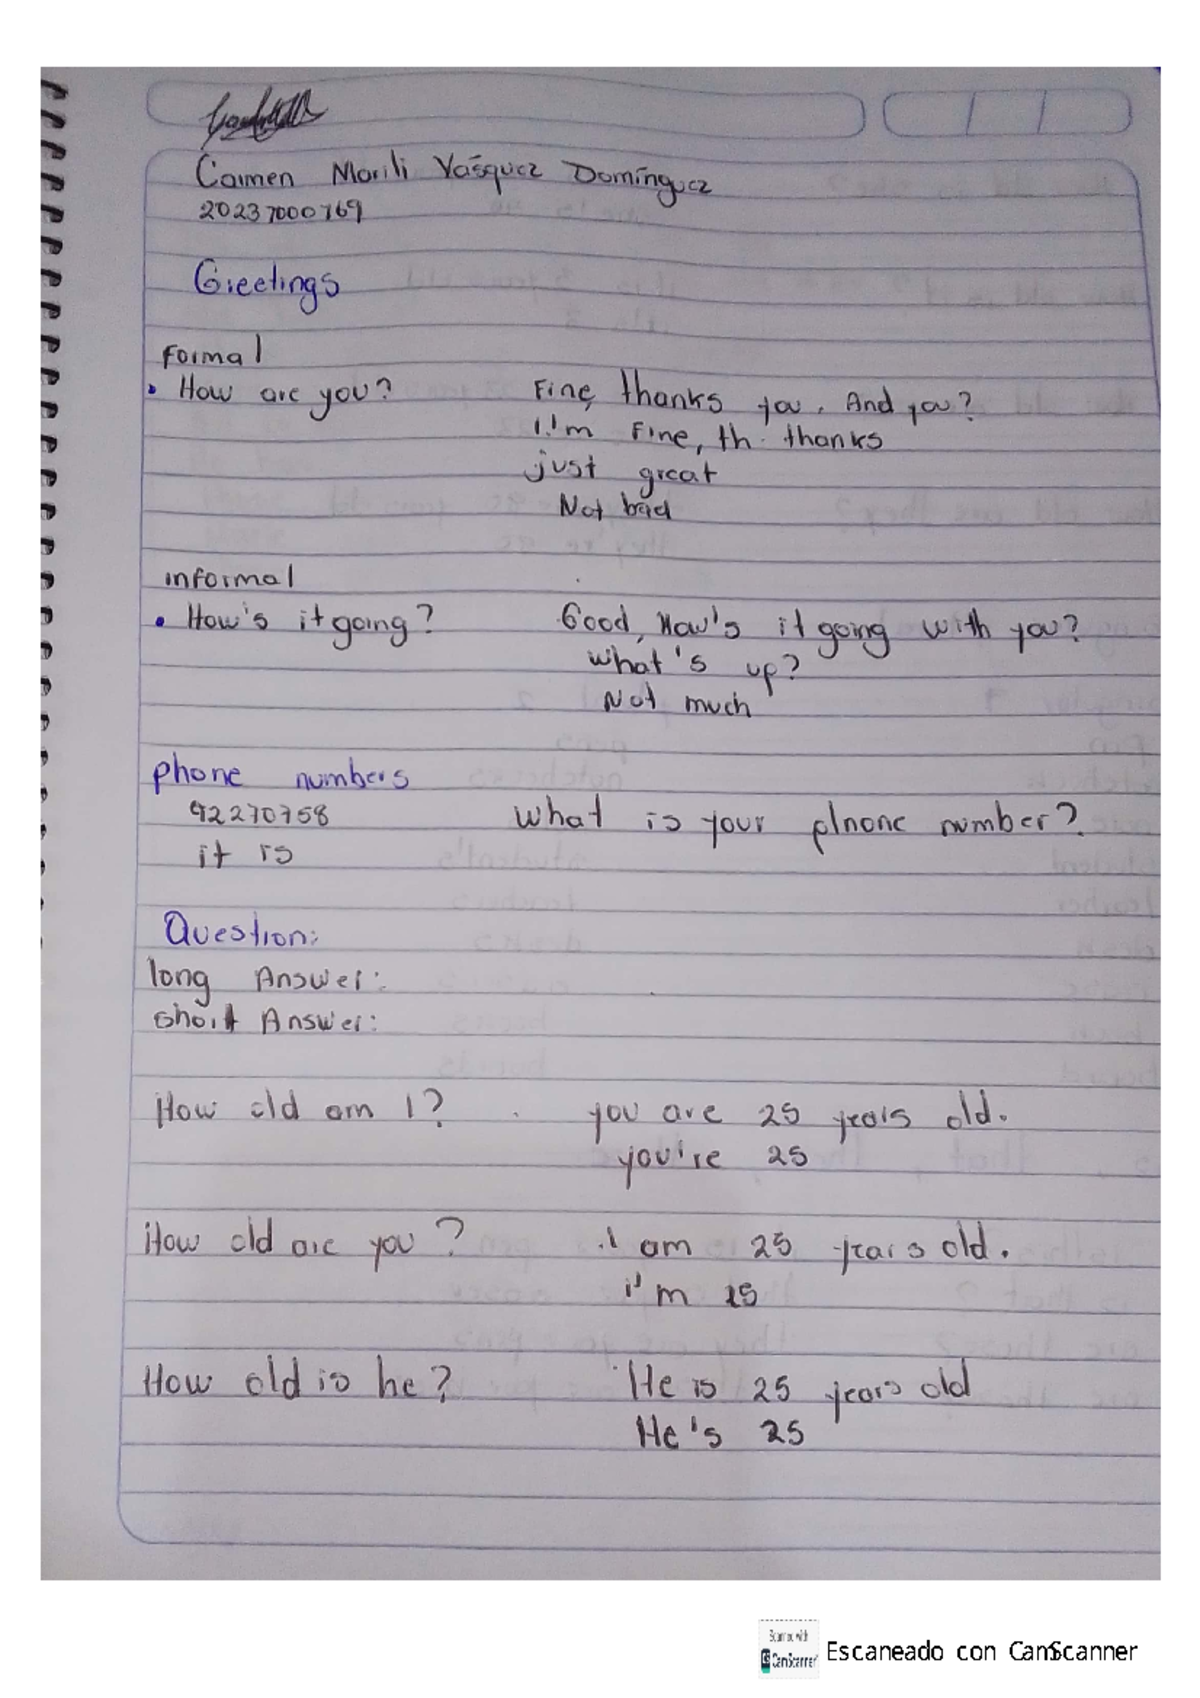 Carmen Marili Vásquez Domínguez
20237000769
Greetings
Formal
• How are you? Fine, thanks you. And you?
I'm Fine, th. thanks
just great
Not bad
informal
• How's it going? Good, How's it going with you?
What's up?
Not much
phone numbers
92270758 What is your phone number?
it is
Question:
long Answer:
short Answer:
How old am I? you are 25 years old.
you're 25
How old are you? I am 25 years old.
i'm 25
How old is he? He is 25 years old
He's 25
Scanned with
CS CamScanner
Escaneado con CamScanner